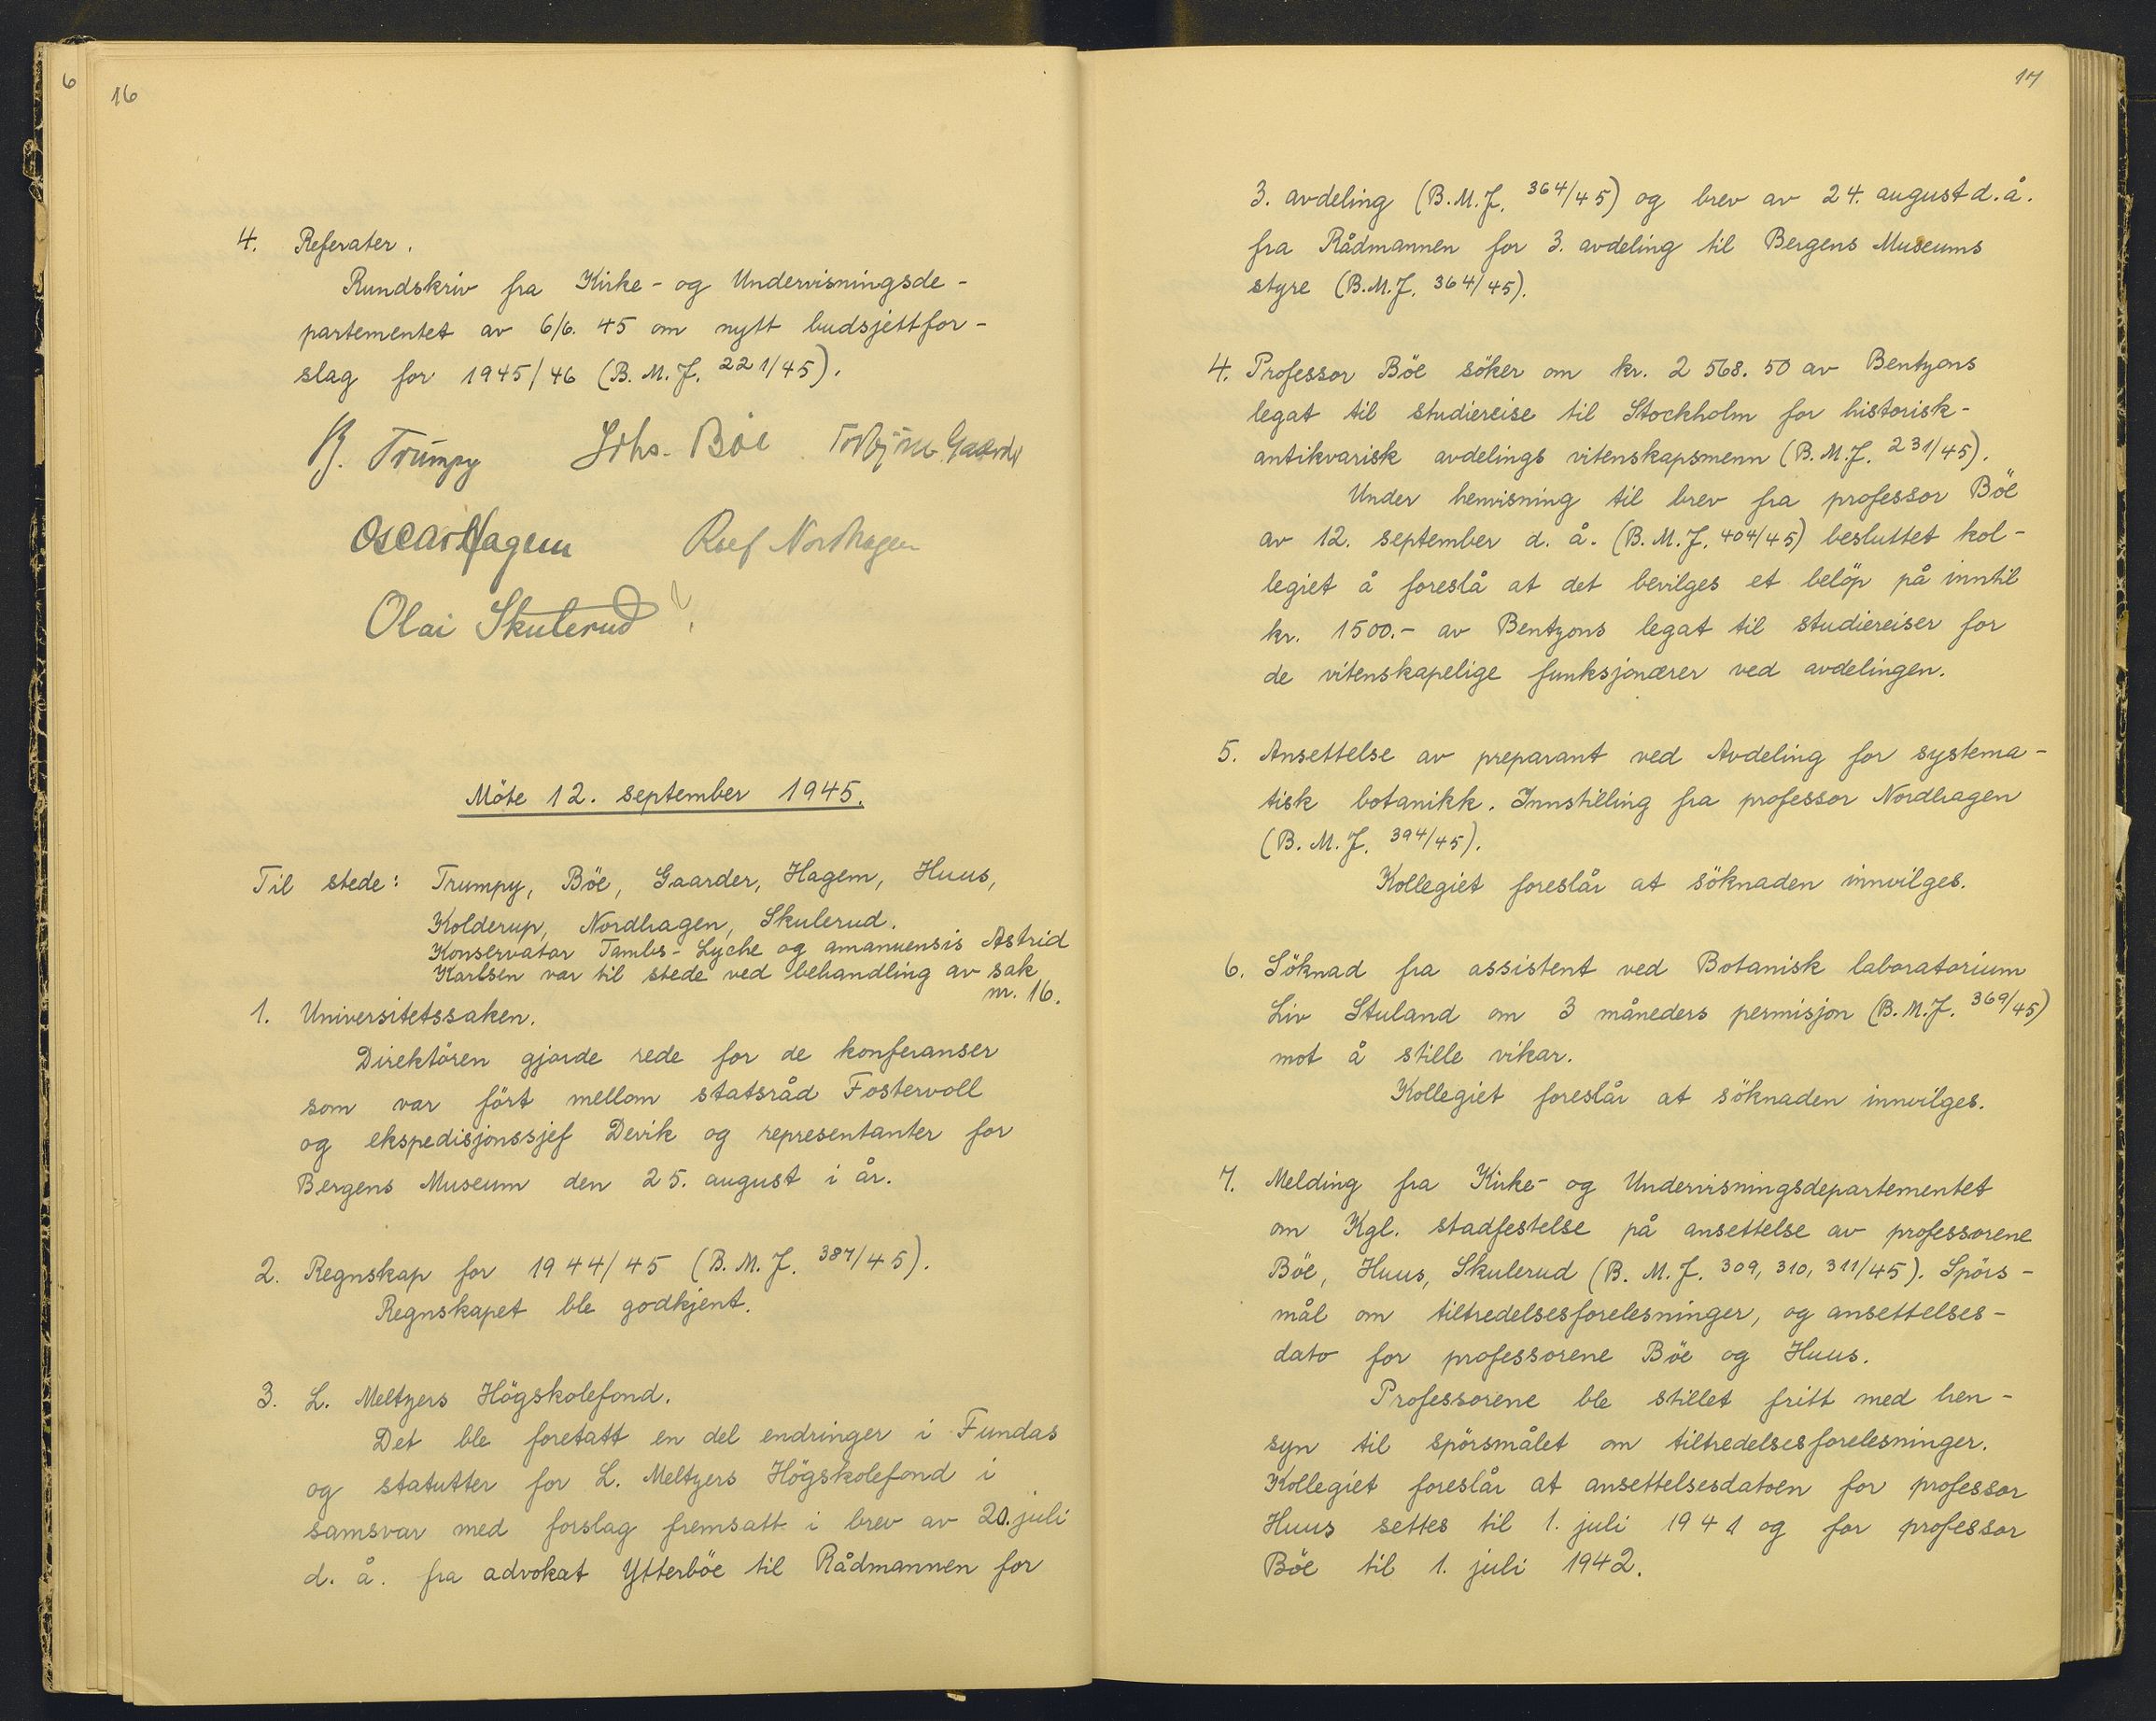 6
16
4. Referater.
Rundskriv fra Kirke- og Undervisningsde-
partementet av 6/6. 45 om nytt budsjettfor-
slag for 1945/46 (B. M. J. 221/45).
B. Trumpy Johs. Böe Torbjørn Gaarder
Oscar Hagem Rolf Nordhagen
Olai Skulerud
Möte 12. september 1945.
Til stede: Trumpy, Böe, Gaarder, Hagem, Huus,
Kolderup, Nordhagen, Skulerud.
Konservator Tambs-Lyche og amanuensis Astrid
Karlsen var til stede ved behandling av sak
nr. 16.
1. Universitetssaken.
Direktören gjorde rede for de konferanser
som var fört mellom statsråd Fostervoll
og ekspedisjonssjef Devik og representanter for
Bergens Museum den 25. august i år.
2. Regnskap for 1944/45 (B. M. J. 387/45).
Regnskapet ble godkjent.
3. L. Meltzers Högskolefond.
Det ble foretatt en del endringer i Fundas
og statutter for L. Meltzers Högskolefond i
samsvar med forslag fremsatt i brev av 20. juli
d. å. fra advokat Ytterböe til Rådmannen for
17
3. avdeling (B. M. J. 364/45) og brev av 24. august d. å.
fra Rådmannen for 3. avdeling til Bergens Museums
styre (B. M. J. 364/45).
4. Professor Böe söker om kr. 2 568.50 av Bentzons
legat til studiereise til Stockholm for historisk-
antikvarisk avdelings vitenskapsmenn (B. M. J. 231/45).
Under henvisning til brev fra professor Böe
av 12. september d. å. (B. M. J. 404/45) besluttet kol-
legiet å foreslå at det bevilges et belöp på inntil
kr. 1500.- av Bentzons legat til studiereiser for
de vitenskapelige funksjonærer ved avdelingen.
5. Ansettelse av preparant ved Avdeling for systema-
tisk botanikk. Innstilling fra professor Nordhagen
(B. M. J. 394/45).
Kollegiet foreslår at söknaden innvilges.
6. Söknad fra assistent ved Botanisk laboratorium
Liv Stuland om 3 måneders permisjon (B. M. J. 369/45)
mot å stille vikar.
Kollegiet foreslår at söknaden innvilges.
7. Melding fra Kirke- og Undervisningsdepartementet
om Kgl. stadfestelse på ansettelse av professorene
Böe, Huus, Skulerud (B. M. J. 309, 310, 311/45). Spörs-
mål om tiltredelsesforelesninger, og ansettelses-
dato for professorene Böe og Huus.
Professorene ble stillet fritt med hen-
syn til spörsmålet om tiltredelsesforelesninger.
Kollegiet foreslår at ansettelsesdatoen for professor
Huus settes til 1. juli 1941 og for professor
Böe til 1. juli 1942.